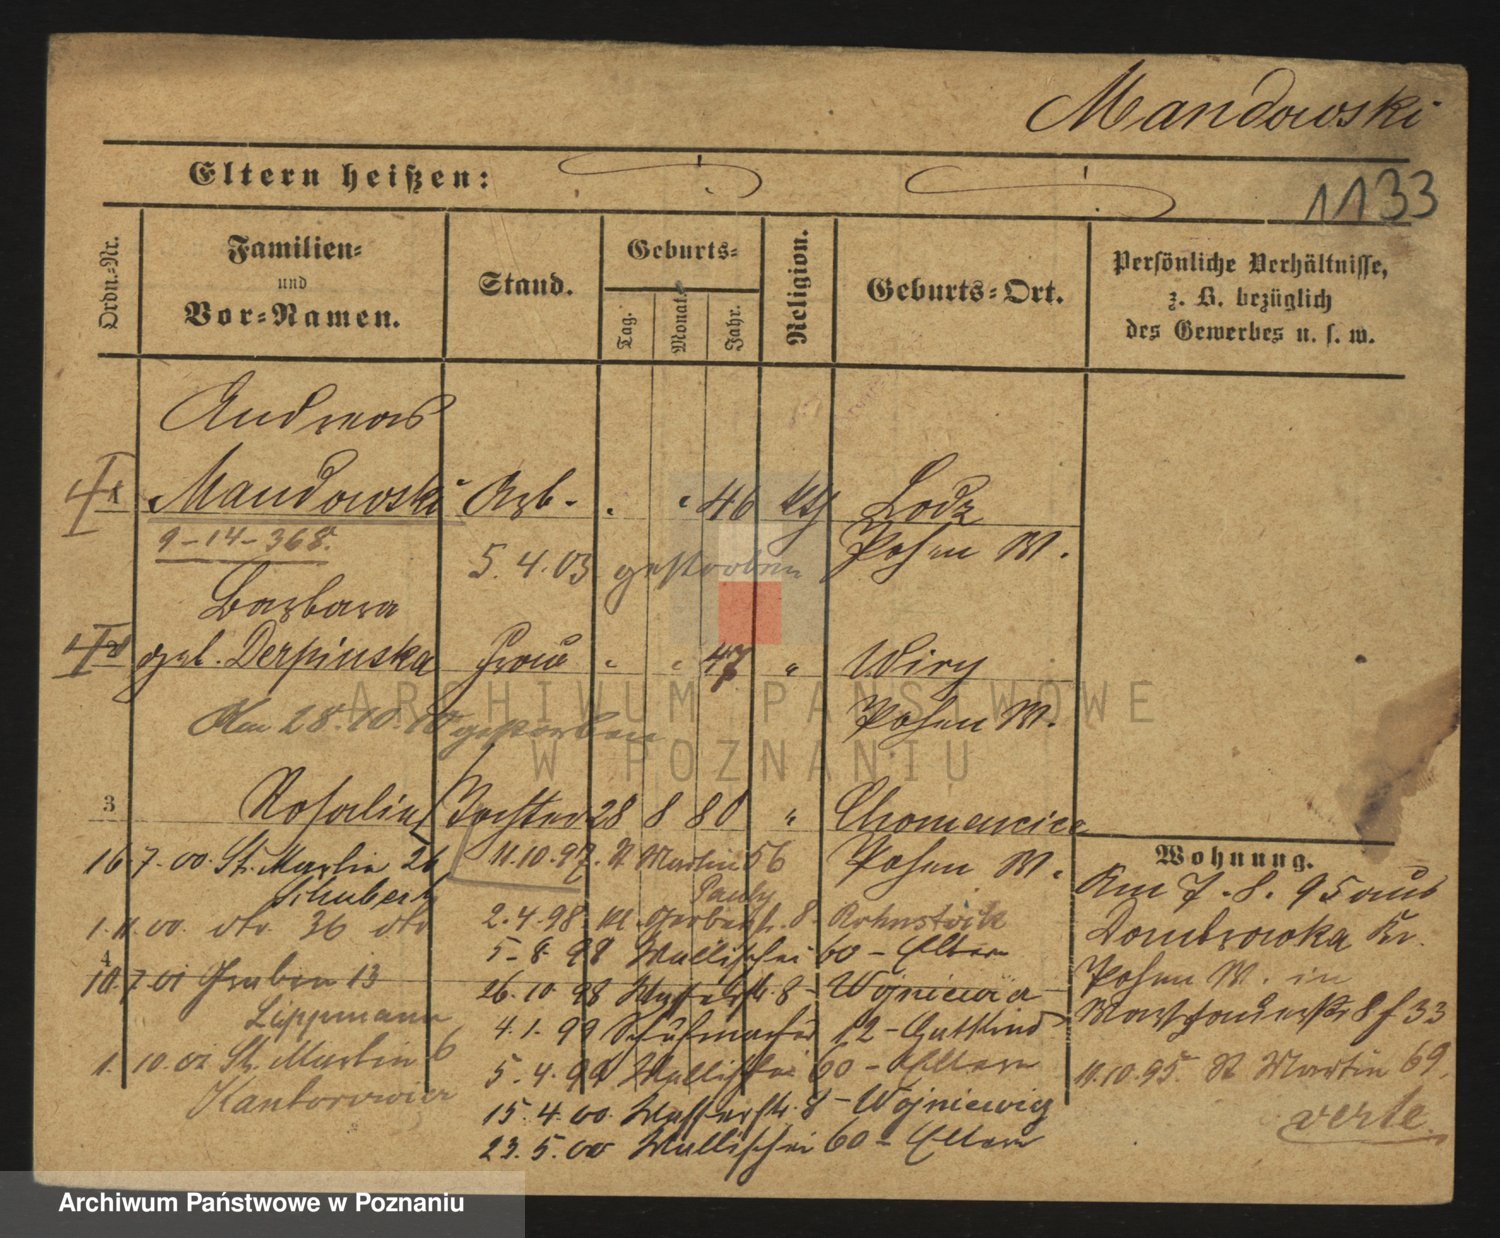 Mandowski
Eltern heißen:
1133
Ordn.-Nr.
Familien-
und
Vor-Namen.
Stand.
Geburts-
Tag.
Monat.
Jahr.
Religion.
Geburts-Ort.
Persönliche Verhältnisse,
z. B. bezüglich
des Gewerbes u. s. w.
Andreas
1 Mandowski Arb. 46 kth Lodz
9-14-368. Posen W.
5.4.03 gestorben
Barbara
2 geb. Derpinska Frau 47 " Wiry
Am 28.10.10 gestorben Posen W.
3 Rosalie Tochter 28 8 80 " Chomencice
Posen W.
16 7.00. St. Martin 26
Schubert
1.11.00. dto 36 dto
4
10.7.01 Graben 13
Lippmann
1.10.01 St. Martin 6
Kantorowicz
11.10.97. St Martin 56
Pauly
2.4.98. Kl. Gerberstr. 8 - Rohnstock
5.8.98 Wallischei 60 - Eltern
26.10.98 Wasserstr. 8 - Wojniewicz
4.1.99 Schuhmacher 12 - Gutkind
5.4.99 Wallischei 60 - Eltern
15.4.00. Wasserstr. 8 - Wojniewicz
23.5.00 Wallischei 60 - Eltern
Wohnung.
Am 7.8.95 aus
Dombrowka Kr.
Posen W. in
8 f 33
11.10.95. St Martin 69.
verte.
ARCHIWUM PAŃSTWOWE
W POZNANIU
Archiwum Państwowe w Poznaniu